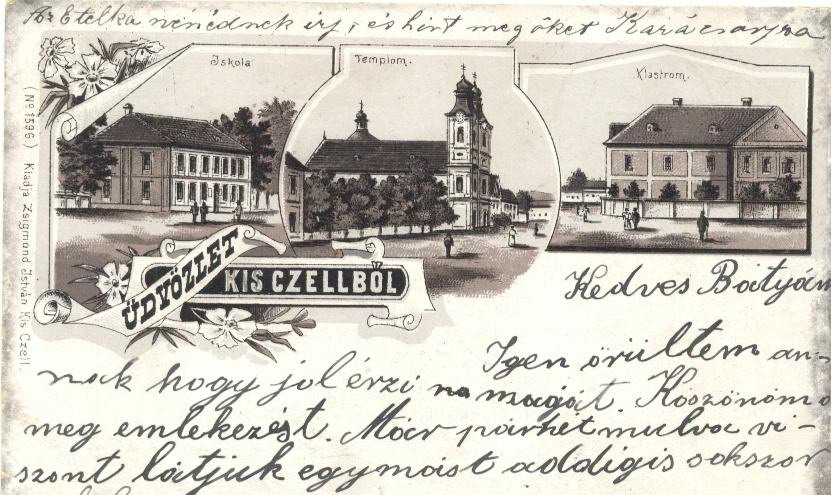 Az Etelka nénédnek írj, és hint meg őket Karácsonyra
Iskola
Templom.
Klastrom.
(No 1596.) Kiadja Zsigmond István Kis Czell.
ÜDVÖZLET
KIS CZELLBŐL
Kedves Bátyám
Igen örültem an-
nak hogy jól érzi magát. Köszönöm
meg emlekezést. Már párhét mulva vi-
szont látjuk egymást addigis sokszor